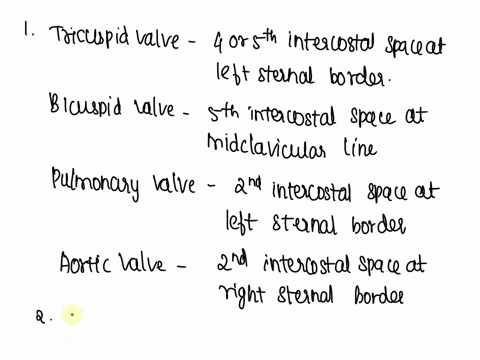 1. Tricuspid valve - 4 or 5th intercostal space at
left sternal border.
Bicuspid valve - 5th intercostal space at
midclavicular line
Pulmonary valve - 2nd intercostal space at
left sternal border
Aortic valve - 2nd intercostal space at
right sternal border
2.